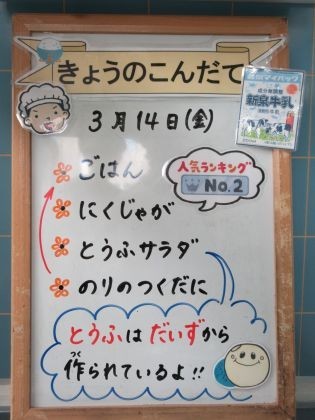 きょうのこんだて
3月14日(金)
ごはん
人気ランキング
No.2
にくじゃが
とうふサラダ
のりのつくだに
とうふは だいずから
作られているよ!!
つく
新泉牛乳